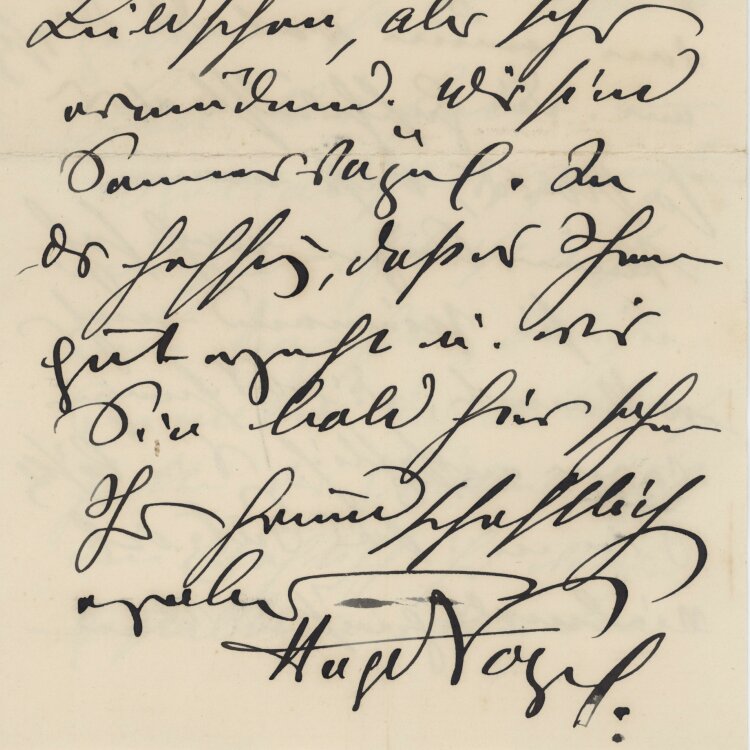 aber sehr
ermüdend. Wir sind
Sommervögel. In
der Hoffng, daß es Ihnen
gut geht u. wir
Sie bald hier sehn
Ihr freundschaftlich
ergebener
Hugo Vogel.